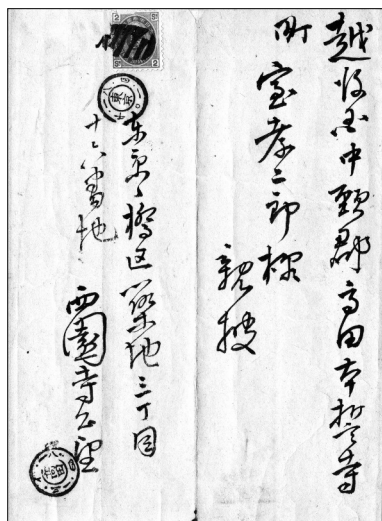 越後国中頸郡高田本誓寺
町 室孝二郎様
親披
東京々橋区築地三丁目
十六番地
西園寺公望